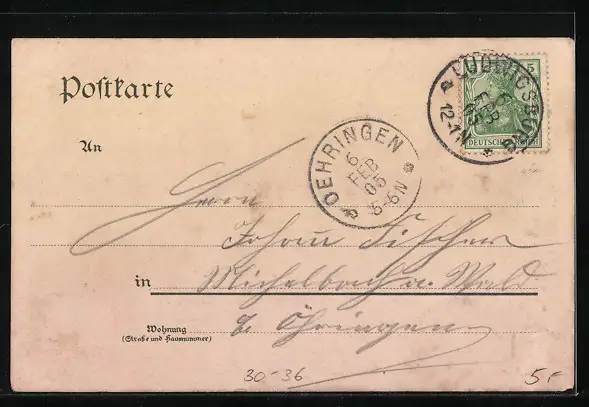 Postkarte
LUDWIGSBURG
6 FEB 05
12-1N
5
DEUTSCHES REICH
An
OEHRINGEN
6 FEB 05
5-6N
Herrn
Johann Fischer
in Michelbach a. Wald
b. Öhringen
Wohnung
(Straße und Hausnummer)
30-36
5.-